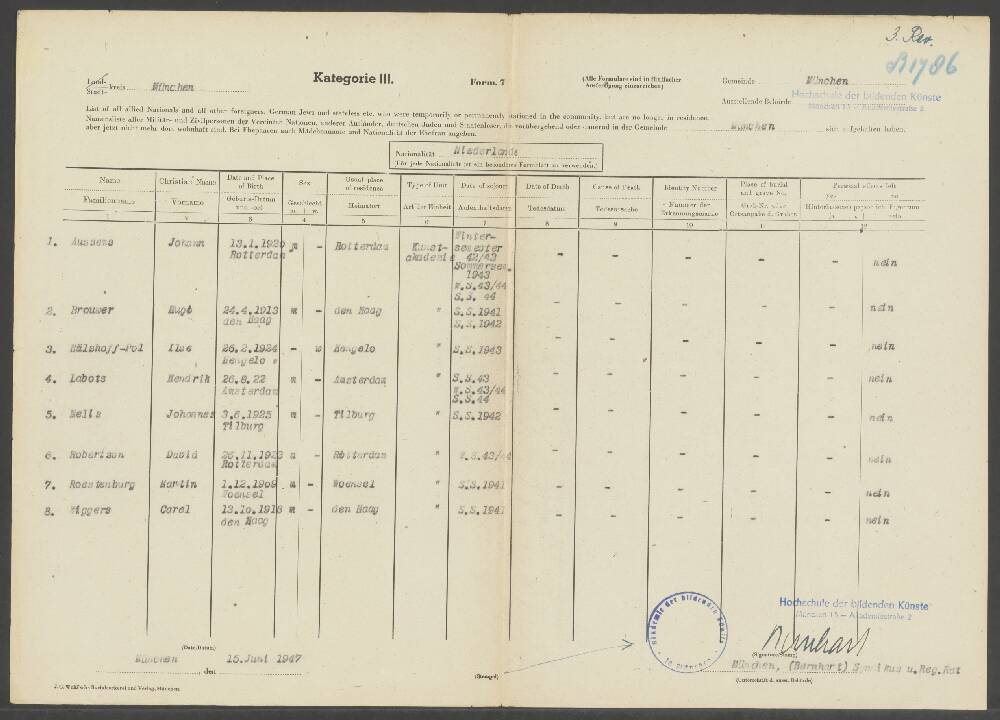 3. Rev.
B1786
Land-
Stadt- kreis München
Kategorie III.
Form. 7
(Alle Formulare sind in fünffacher
Ausfertigung einzureichen)
Gemeinde München
Ausstellende Behörde
Hochschule der bildenden Künste
München 13 - Akademiestraße 2
List of all allied Nationals and all other foreigners, German Jews and stateless etc. who were temporarily or permanently stationed in the community, but are no longer in residence.
Namensliste aller Militär- und Zivilpersonen der Vereinten Nationen, anderer Ausländer, deutschen Juden und Staatenloser, die vorübergehend oder dauernd in der Gemeinde München sich aufgehalten haben,
aber jetzt nicht mehr dort wohnhaft sind. Bei Ehepaaren auch Mädchenname und Nationalität der Ehefrau angeben.
Nationalität Niederlande
(Für jede Nationalität ist ein besonderes Formblatt zu verwenden.)
Name Christian Name Date and Place of Birth Sex Usual place of residence Type of Unit Date of sejourn Date of Death Cause of Death Identity Number Place of burial and grave No. Personal effects left
yes no
Familienname Vorname Geburts-Datum und -ort Geschlecht m | w Heimatort Art der Einheit Aufenthaltsdatum Todesdatum Todesursache Nummer der Erkennungsmarke Grab-No. oder Ortsangabe d. Grabes Hinterlassenes pers. Eigentum
ja nein
1 2 3 4 5 6 7 8 9 10 11 12
1. Aussems Johann 13.1.1920 m - Rotterdam Kunst- Winter- - - - - - nein
Rotterdam akademie semester
42/43
Sommersem.
1943
W.S.43/44
S.S. 44
2. Brouwer Hugo 24.4.1913 m - den Haag " S.S.1941 - - - - - nein
den Haag S.S.1942
3. Hülshoff-Pol Ilse 26.2.1924 - w Hengelo " S.S.1943 - - - - - nein
Hengelo
4. Labots Hendrik 26.8.22 m - Amsterdam " S.S.43 - - - - - nein
Amsterdam W.S.43/44
S.S.44
5. Melis Johannes 3.6.1925 m - Tilburg " S.S.1942 - - - - - nein
Tilburg
6. Robertson David 26.11.1923 m - Rotterdam " W.S.43/44 - - - - - nein
Rotterdam
7. Roestenburg Martin 1.12.1909 m - Woensel " S.S.1941 - - - - - nein
Woensel
8. Wiggers Carel 13.1o.1916 m - den Haag " S.S.1941 - - - - - nein
den Haag
Akademie der bildenden Künste
in München
Hochschule der bildenden Künste
München 13 - Akademiestraße 2
Barnhart
(Date/Datum)
München, den 16.Juni 1947
(Stempel)
(Signature/Name)
München, (Barnhart) Syndikus u.Reg.Rat
(Unterschrift d. ausst. Behörde)